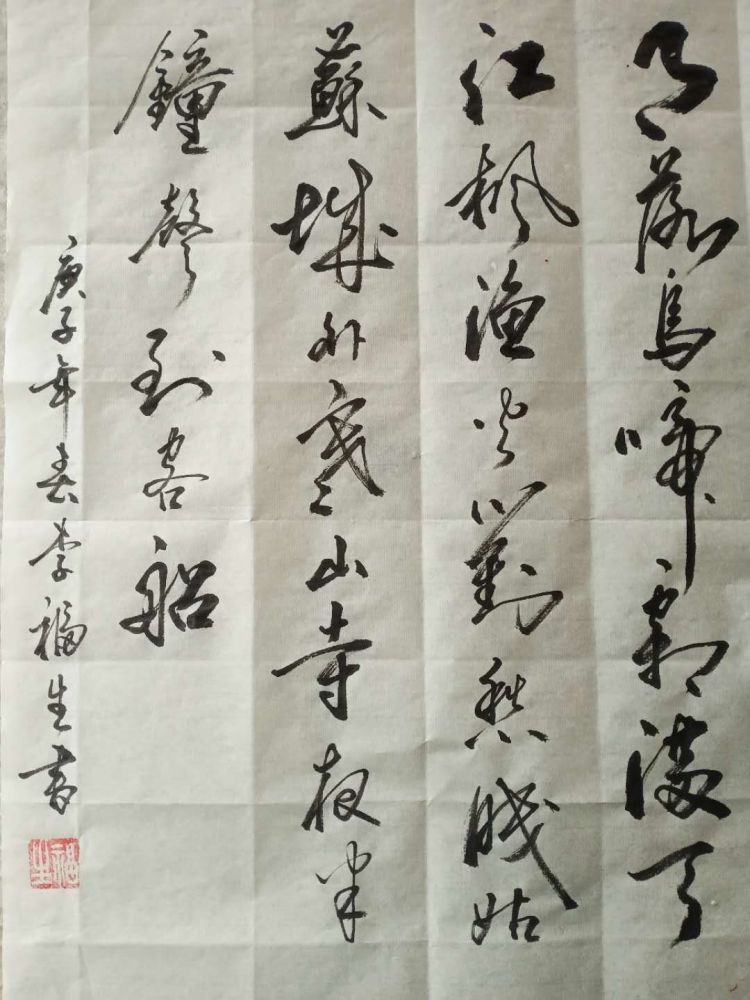 月落烏啼霜滿天
江楓漁火對愁眠姑
蘇城外寒山寺夜半
鐘聲到客船
庚子年春李福生書
福生